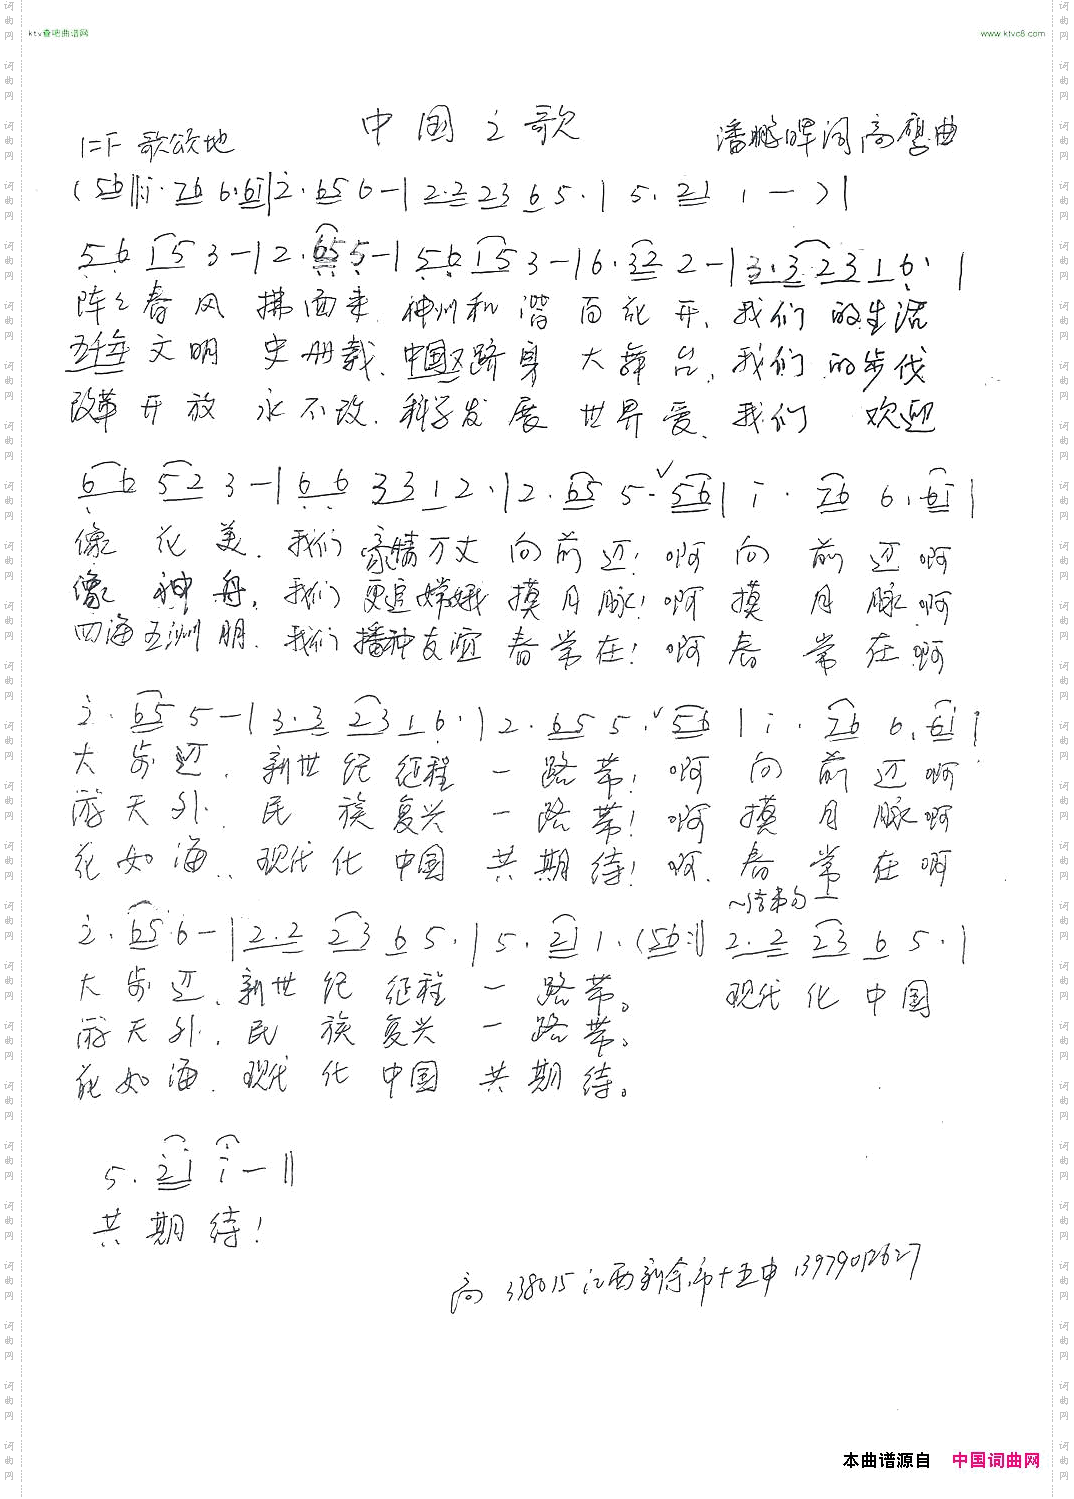 ktv查吧曲谱网
www.ktvc8.com
中国之歌
1=F 歌颂地
潘鹏晖词 高鹰曲
(56‖:i· 76 6·6i|2· 65 6-|2·2 23 6 5·|5· 21 1 -)|
56 15 3-|2· 65 5-|56 15 3-|6· 32 2-|3·3 23 1 6·|
阵阵春风 拂面来.神州和谐 百花开.我们 的生活
五千年文明 史册载.中国又跻身 大舞台.我们 的步伐
改革开放 永不改.科学发展 世界爱.我们 欢迎
66 52 3-|66 33 1 2·|2· 65 5·56|i· 76 6·6i|
像花美.我们豪情万丈向前迈!啊向前迈啊
像神舟.我们更追嫦娥摸月脉!啊摸月脉啊
四海五洲朋.我们播种友谊春常在!啊春常在啊
2· 65 5-|3·3 23 1 6·|2· 65 5·56|i· 76 6·6i|
大步迈.新世纪征程一路带!啊向前迈啊
游天外.民族复兴一路带!啊摸月脉啊
花如海.现代化中国共期待!啊.春常在啊
结束句
2· 65 6-|2·2 23 6 5·|5· 21 1·(56:‖2·2 23 6 5·|
大步迈.新世纪征程一路带。 现代化中国
游天外.民族复兴一路带。
花如海.现代化中国共期待。
5· 2i i-‖
共期待!
高 338015 江西新余市十五中 13979012627
本曲谱源自 中国词曲网